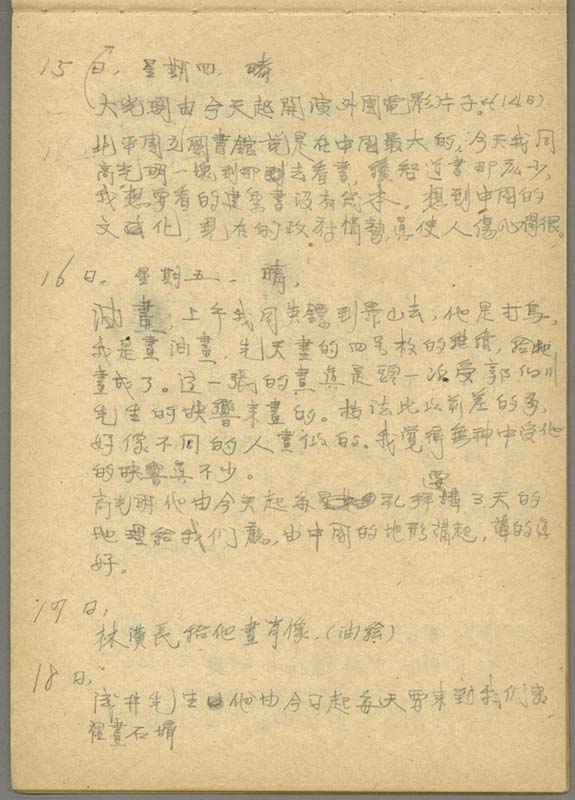 15日，星期四，晴
大光明由今天起開演外國電影片子。(14日)
北平國立圖書館說是在中國最大的，今天我同
高光明一塊到那到去看書，後知道書那麽少，
我想要看的建築書没有幾本，想到中國的
文化，現在的政府情勢，真使人傷心得很。
16日，星期五，晴，
油畫，上午我同英鐸到景山去，他是打鳥，
我是畫油畫，先天畫的四号枚的繼續，給他
畫成了。这一張的畫真是頭一次受郭伯川
先生的映響来畫的。技法比以前差的多，
好像不同的人畫似的。我覺得無神中受他
的映響真不少。
高光明他由今天起每礼拜要講3天的
地理給我们聽，由中国的地形講起，講的
好。
17日，
林廣長給他畫肖像，(油繪)
18日，
浅井先生他由今日起每天要来到我们家
裡畫石榴